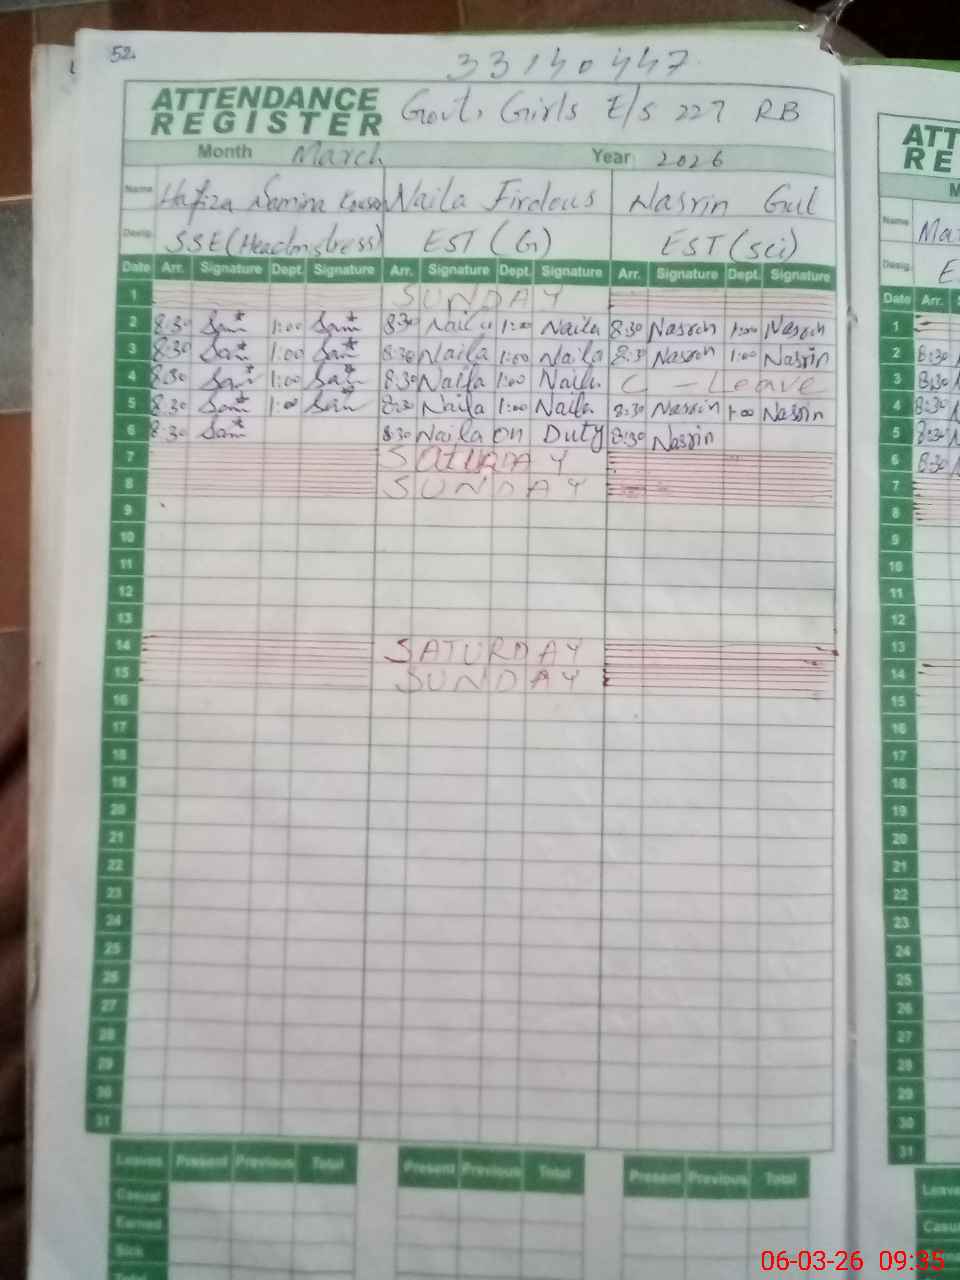 52.
33140447
ATTENDANCE REGISTER
Govt. Girls E/S 227 RB
Month March Year 2026
Name Hafiza Samina Kousar Naila Firdous Nasrin Gul
Desig. SSE(Headmistress) EST (G) EST (sci)
Date Arr. Signature Dept. Signature Arr. Signature Dept. Signature Arr. Signature Dept. Signature
1 SUNDAY
2 8:30 Sam 1:00 Sam 8:30 Naila 1:00 Naila 8:30 Nasrin 1:00 Nasrin
3 8:30 Sam 1:00 Sam 8:30 Naila 1:00 Naila 8:3 Nasrin 1:00 Nasrin
4 8:30 Sam 1:00 Sam 8:30 Naila 1:00 Naila C - Leave
5 8:30 Sam 1:00 Sam 8:30 Naila 1:00 Naila 8:30 Nasrin 1:00 Nasrin
6 8:30 Sam 8:30 Naila on Duty 8:30 Nasrin
7 SATURDAY
8 SUNDAY
9
10
11
12
13
14 SATURDAY
15 SUNDAY
16
17
18
19
20
21
22
23
24
25
26
27
28
29
30
31
Leaves Present Previous Total Present Previous Total Present Previous Total
Casual
Earned
Sick
Total
ATT
RE
M
Name Ma
Desig. E
Date Arr. S
1
2 8:30
3 8:30
4 8:30
5 8:30
6 8:30
7
8
9
10
11
12
13
14
15
16
17
18
19
20
21
22
23
24
25
26
27
28
29
30
31
Leave
Casu
Earne
06-03-26 09:35